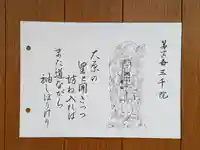 第十六番 三千院
大原の
里を聞きつつ
訪ね入れば
また道ながら
袖しほりけり